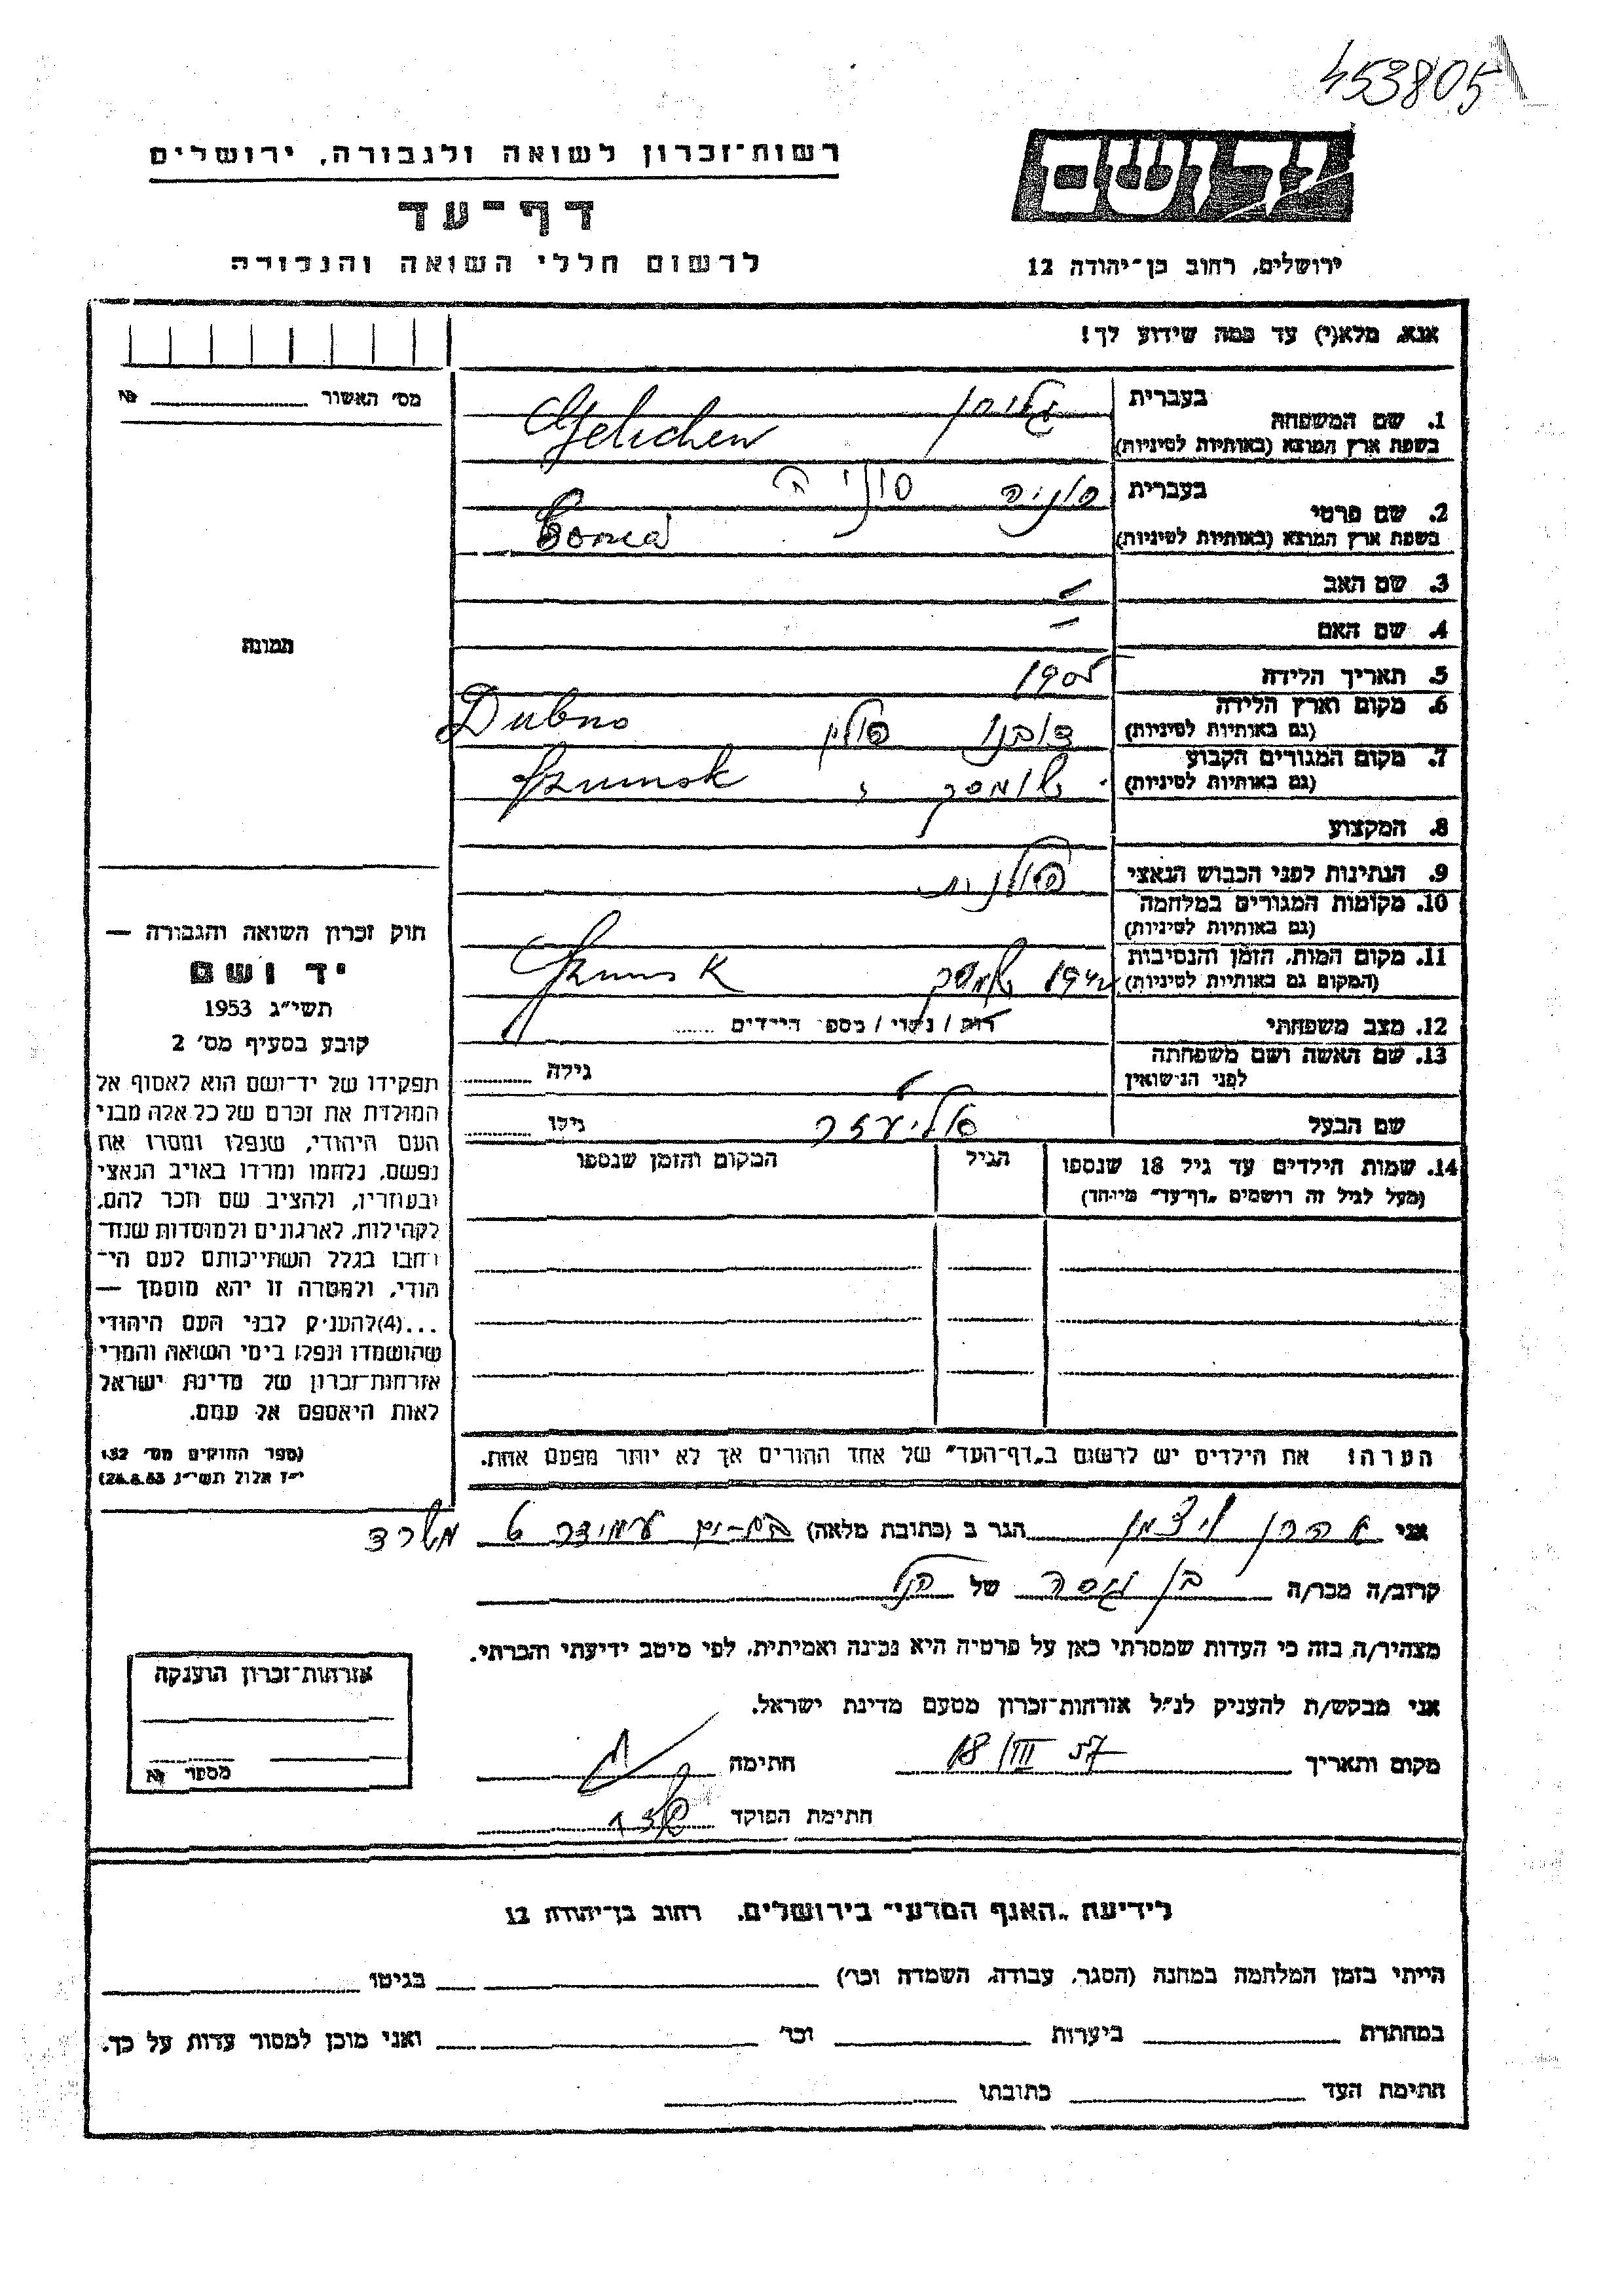 453805
רשות־זכרון לשואה ולגבורה, ירושלים
דף־עד
לרשום חללי השואה והגבורה
ירושלים, רחוב בן־יהודה 12
אנא, מלא(י) עד כמה שידוע לך!
מס' האשור №
1. שם המשפחה
בעברית
בשפת ארץ המוצא (באותיות לטיניות)
2. שם פרטי
בעברית סוניה סוניה
בשפת ארץ המוצא (באותיות לטיניות) Sonia
3. שם האב –
4. שם האם –
5. תאריך הלידה 1905
6. מקום וארץ הלידה
(גם באותיות לטיניות) דובנו פולין Dubno
7. מקום המגורים הקבוע
(גם באותיות לטיניות) שומסק Szumsk
8. המקצוע
9. הנתינות לפני הכבוש הנאצי פולנית
10. מקומות המגורים במלחמה
(גם באותיות לטיניות)
11. מקום המות, הזמן והנסיבות
(המקום גם באותיות לטיניות) 1942 שומסק Szumsk
12. מצב משפחתי רוק / נשוי / מספר הילדים
13. שם האשה ושם משפחתה
לפני הנישואין גילה
שם הבעל אליעזר גילו
14. שמות הילדים עד גיל 18 שנספו
(מעל לגיל זה רושמים „דף־עד” מיוחד)
הגיל
המקום והזמן שנספו
הערה: את הילדים יש לרשום ב„דף־העד” של אחד ההורים אך לא יותר מפעם אחת.
תמונה
חוק זכרון השואה והגבורה —
יד ושם
תשי״ג 1953
קובע בסעיף מס' 2
תפקידו של יד־ושם הוא לאסוף אל
המולדת את זכרם של כל אלה מבני
העם היהודי, שנפלו ומסרו את
נפשם, נלחמו ומרדו באויב הנאצי
ובעוזריו, ולהציב שם וזכר להם,
לקהילות, לארגונים ולמוסדות שנח־
רבו בגלל השתייכותם לעם הי־
הודי, ולמטרה זו יהא מוסמך —
...(4) להעניק לבני העם היהודי
שהושמדו ונפלו בימי השואה והמרי
אזרחות־זכרון של מדינת ישראל
לאות היאספם אל עמם.
(ספר החוקים מס' 132
י״ז אלול תשי״ג 28.8.53)
אני אהרן ויצמן הגר ב (כתובת מלאה) בת-ים עמידר 6
קרוב/ה מכר/ה בן גיסה של הנ״ל
מצהיר/ה בזה כי העדות שמסרתי כאן על פרטיה היא נכונה ואמיתית, לפי מיטב ידיעתי והכרתי.
אני מבקש/ת להעניק לנ״ל אזרחות־זכרון מטעם מדינת ישראל.
מקום ותאריך 18/III 57 חתימה
חתימת הפוקד
אזרחות־זכרון הוענקה
מספר №
לידיעת „האגף המדעי” בירושלים, רחוב בן־יהודה 12
הייתי בזמן המלחמה במחנה (הסגר, עבודה, השמדה וכו') בגיטו
במחתרת ביערות וכו' ואני מוכן למסור עדות על כך.
חתימת העד כתובתו